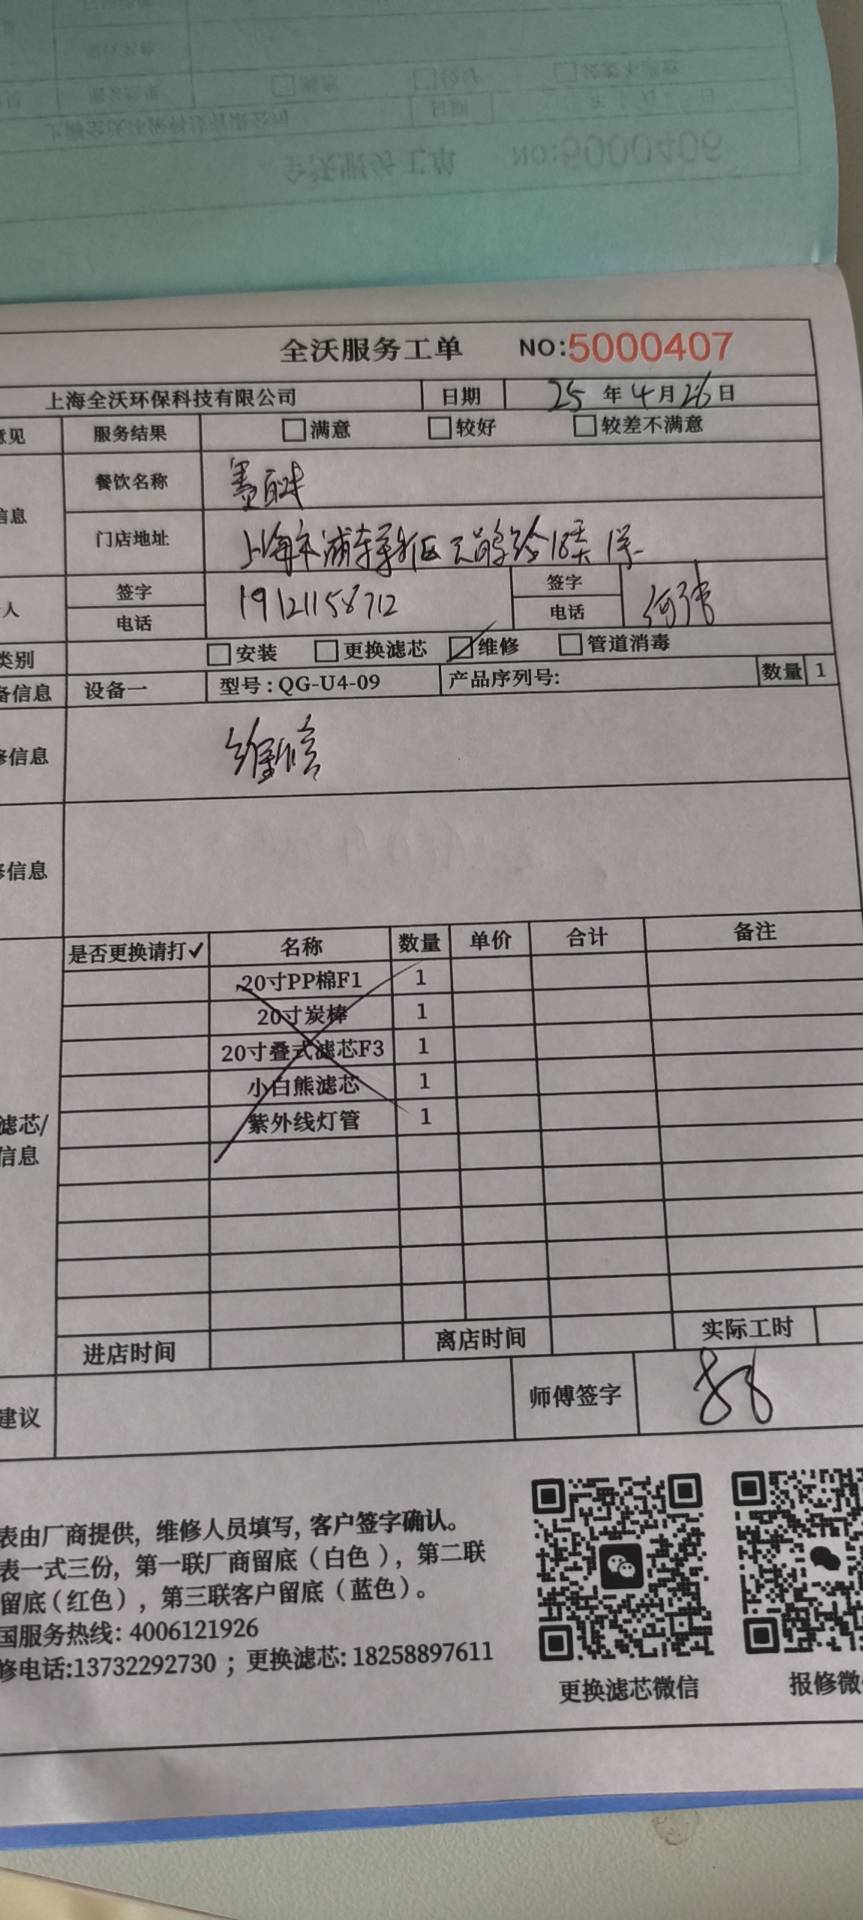 NO:5000406
全沃服务工单 NO:5000407
上海全沃环保科技有限公司 日期 25 年 4 月 26 日
意见 服务结果 满意 较好 较差不满意
信息 餐饮名称
门店地址 上海市浦东新区 18 1
人 签字 19121158712 签字
电话 电话
类别 安装 更换滤芯 维修 管道消毒
备信息 设备一 型号：QG-U4-09 产品序列号: 数量 1
修信息
修信息
是否更换请打✓ 名称 数量 单价 合计 备注
20寸PP棉F1 1
20寸炭棒 1
20寸叠式滤芯F3 1
小白熊滤芯 1
紫外线灯管 1
滤芯/
信息
进店时间 离店时间 实际工时
建议 师傅签字
表由厂商提供，维修人员填写，客户签字确认。
表一式三份，第一联厂商留底（白色），第二联
留底（红色），第三联客户留底（蓝色）。
国服务热线：4006121926
修电话:13732292730 ；更换滤芯: 18258897611
更换滤芯微信 报修微